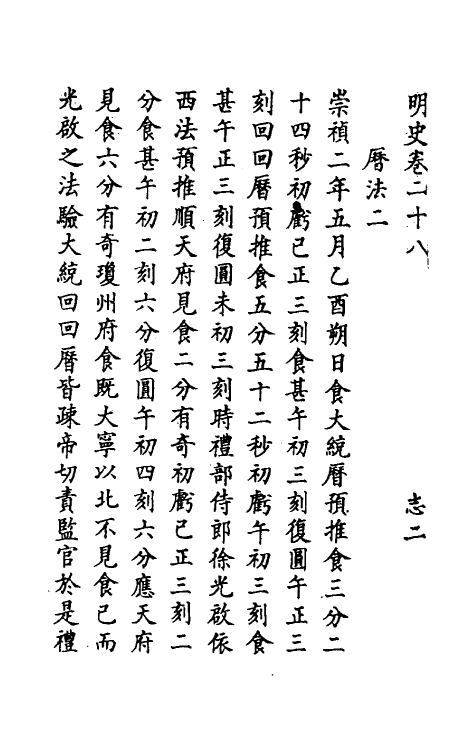 明史卷二十八 志二
曆法二
崇禎二年五月乙酉朔日食大統曆預推食三分二
十四秒初虧巳正三刻食甚午初三刻復圓午正三
刻回回曆預推食五分五十二秒初虧午初三刻食
甚午正三刻復圓未初三刻時禮部侍郎徐光啟依
西法預推順天府見食二分有奇初虧巳正三刻二
分食甚午初二刻六分復圓午初四刻六分應天府
見食六分有奇瓊州府食既大寧以北不見食已而
光啟之法驗大統回回曆皆疎帝切責監官於是禮